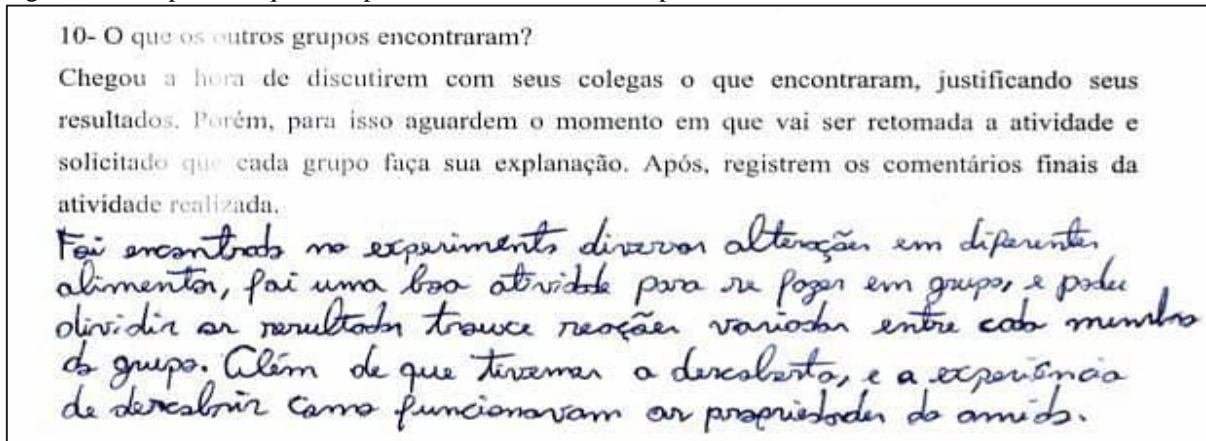 10- O que os outros grupos encontraram?
Chegou a hora de discutirem com seus colegas o que encontraram, justificando seus
resultados. Porém, para isso aguardem o momento em que vai ser retomada a atividade e
solicitado que cada grupo faça sua explanação. Após, registrem os comentários finais da
atividade realizada.
Foi encontrado no experimento diversas alterações em diferentes
alimentos, foi uma boa atividade para se fazer em grupo, e poder
dividir os resultados trouxe reações variadas entre cada membro
do grupo. Além de que tivemos a descoberta, e a experiência
de descobrir como funcionavam as propriedades do amido.